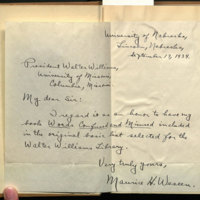 University of Nebraska,
Lincoln, Nebraska,
September 17, 1934.
President Walter Williams,
University of Missouri,
Columbia, Missouri
My dear Sir:
I regard it as an honor to have my
book Words Confused and Misused included
in the original basic list selected for the
Walter Williams Library.
Very truly yours,
Maurice H. Weseen.